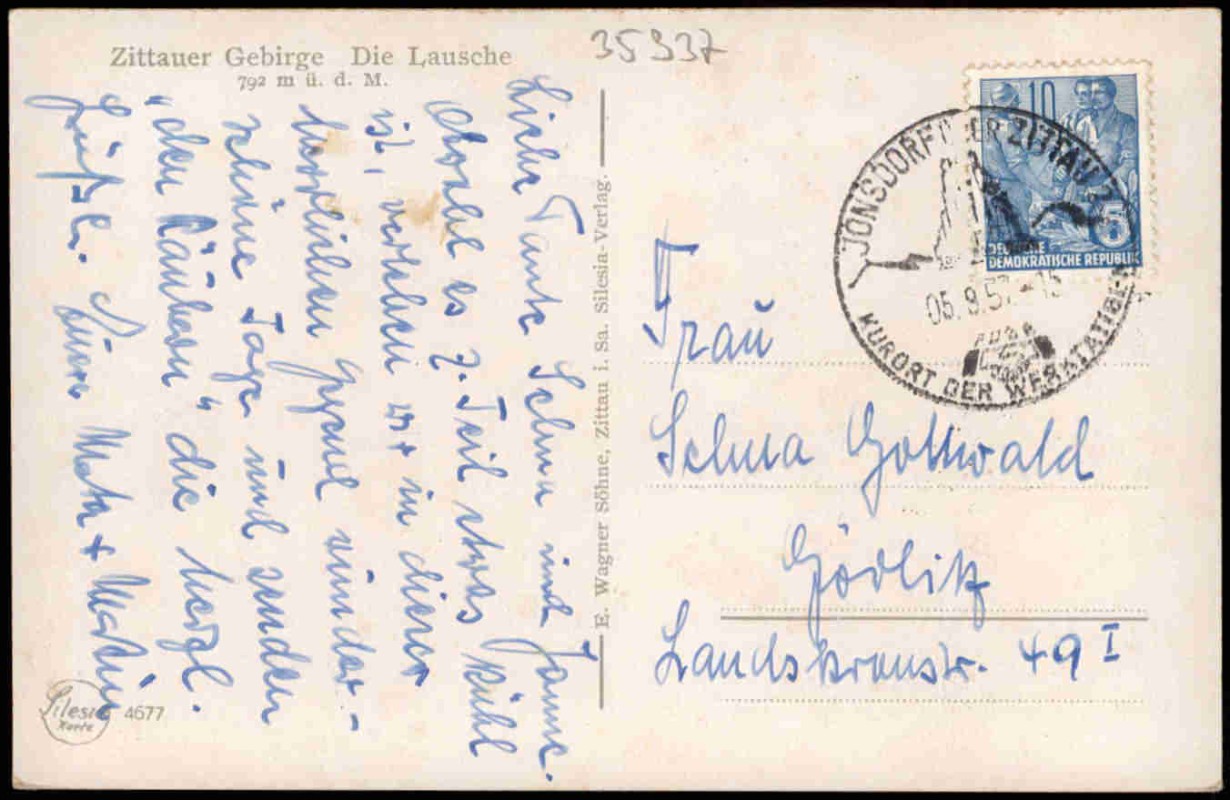 Zittauer Gebirge Die Lausche
792 m ü. d. M.
35937
Liebe Tante Selma und Janne.
Obwohl es z. Teil etwas kühl
ist, verleben wir in dieser
herrlichen Gegend wunder-
schöne Tage und senden
"den Räubern" die herzl.
Grüße. Eure Meta +
Silesia
Karte
4677
E. Wagner Söhne, Zittau i. Sa. Silesia-Verlag.
10
5
DEUTSCHE
DEMOKRATISCHE REPUBLIK
JONSDORF ÜBER ZITTAU
05.9.57.-15
KURORT DER WERKTÄTIGEN
Frau
Selma Gottwald
Görlitz
Landskronstr. 49 I